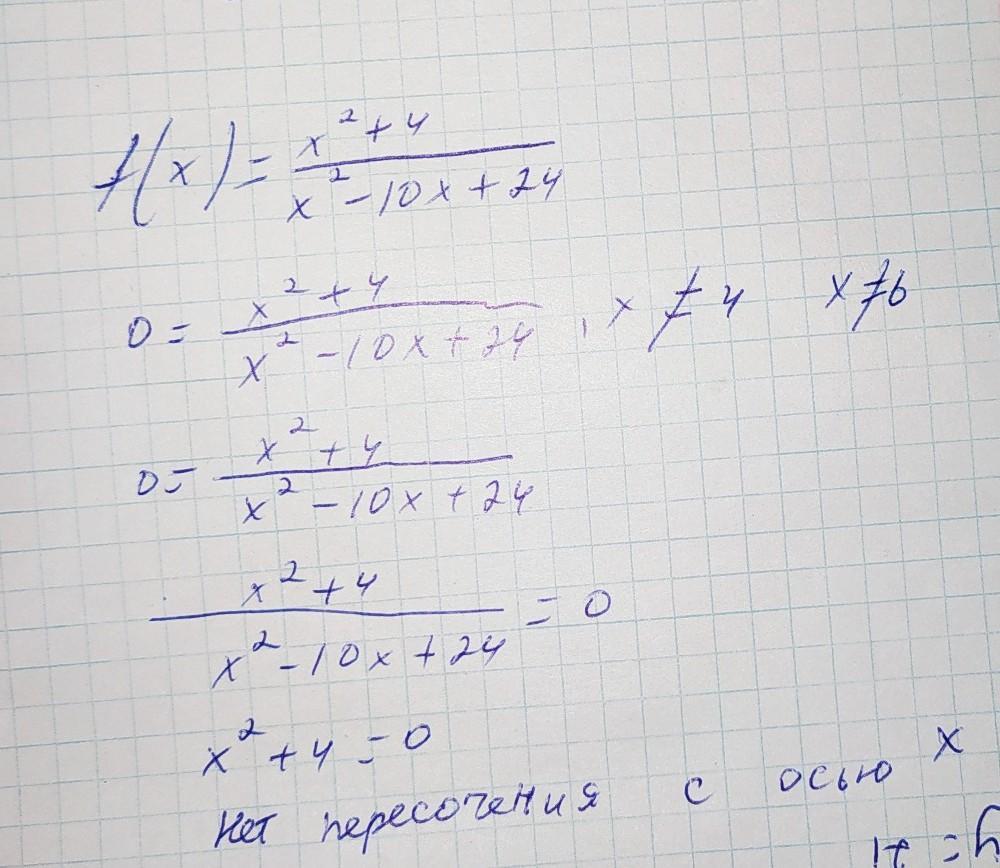 f(x) = (x² + 4)/(x² - 10x + 24)
0 = (x² + 4)/(x² - 10x + 24), x ≠ 4 x ≠ 6
0 = (x² + 4)/(x² - 10x + 24)
(x² + 4)/(x² - 10x + 24) = 0
x² + 4 = 0
Нет пересочения с осью x